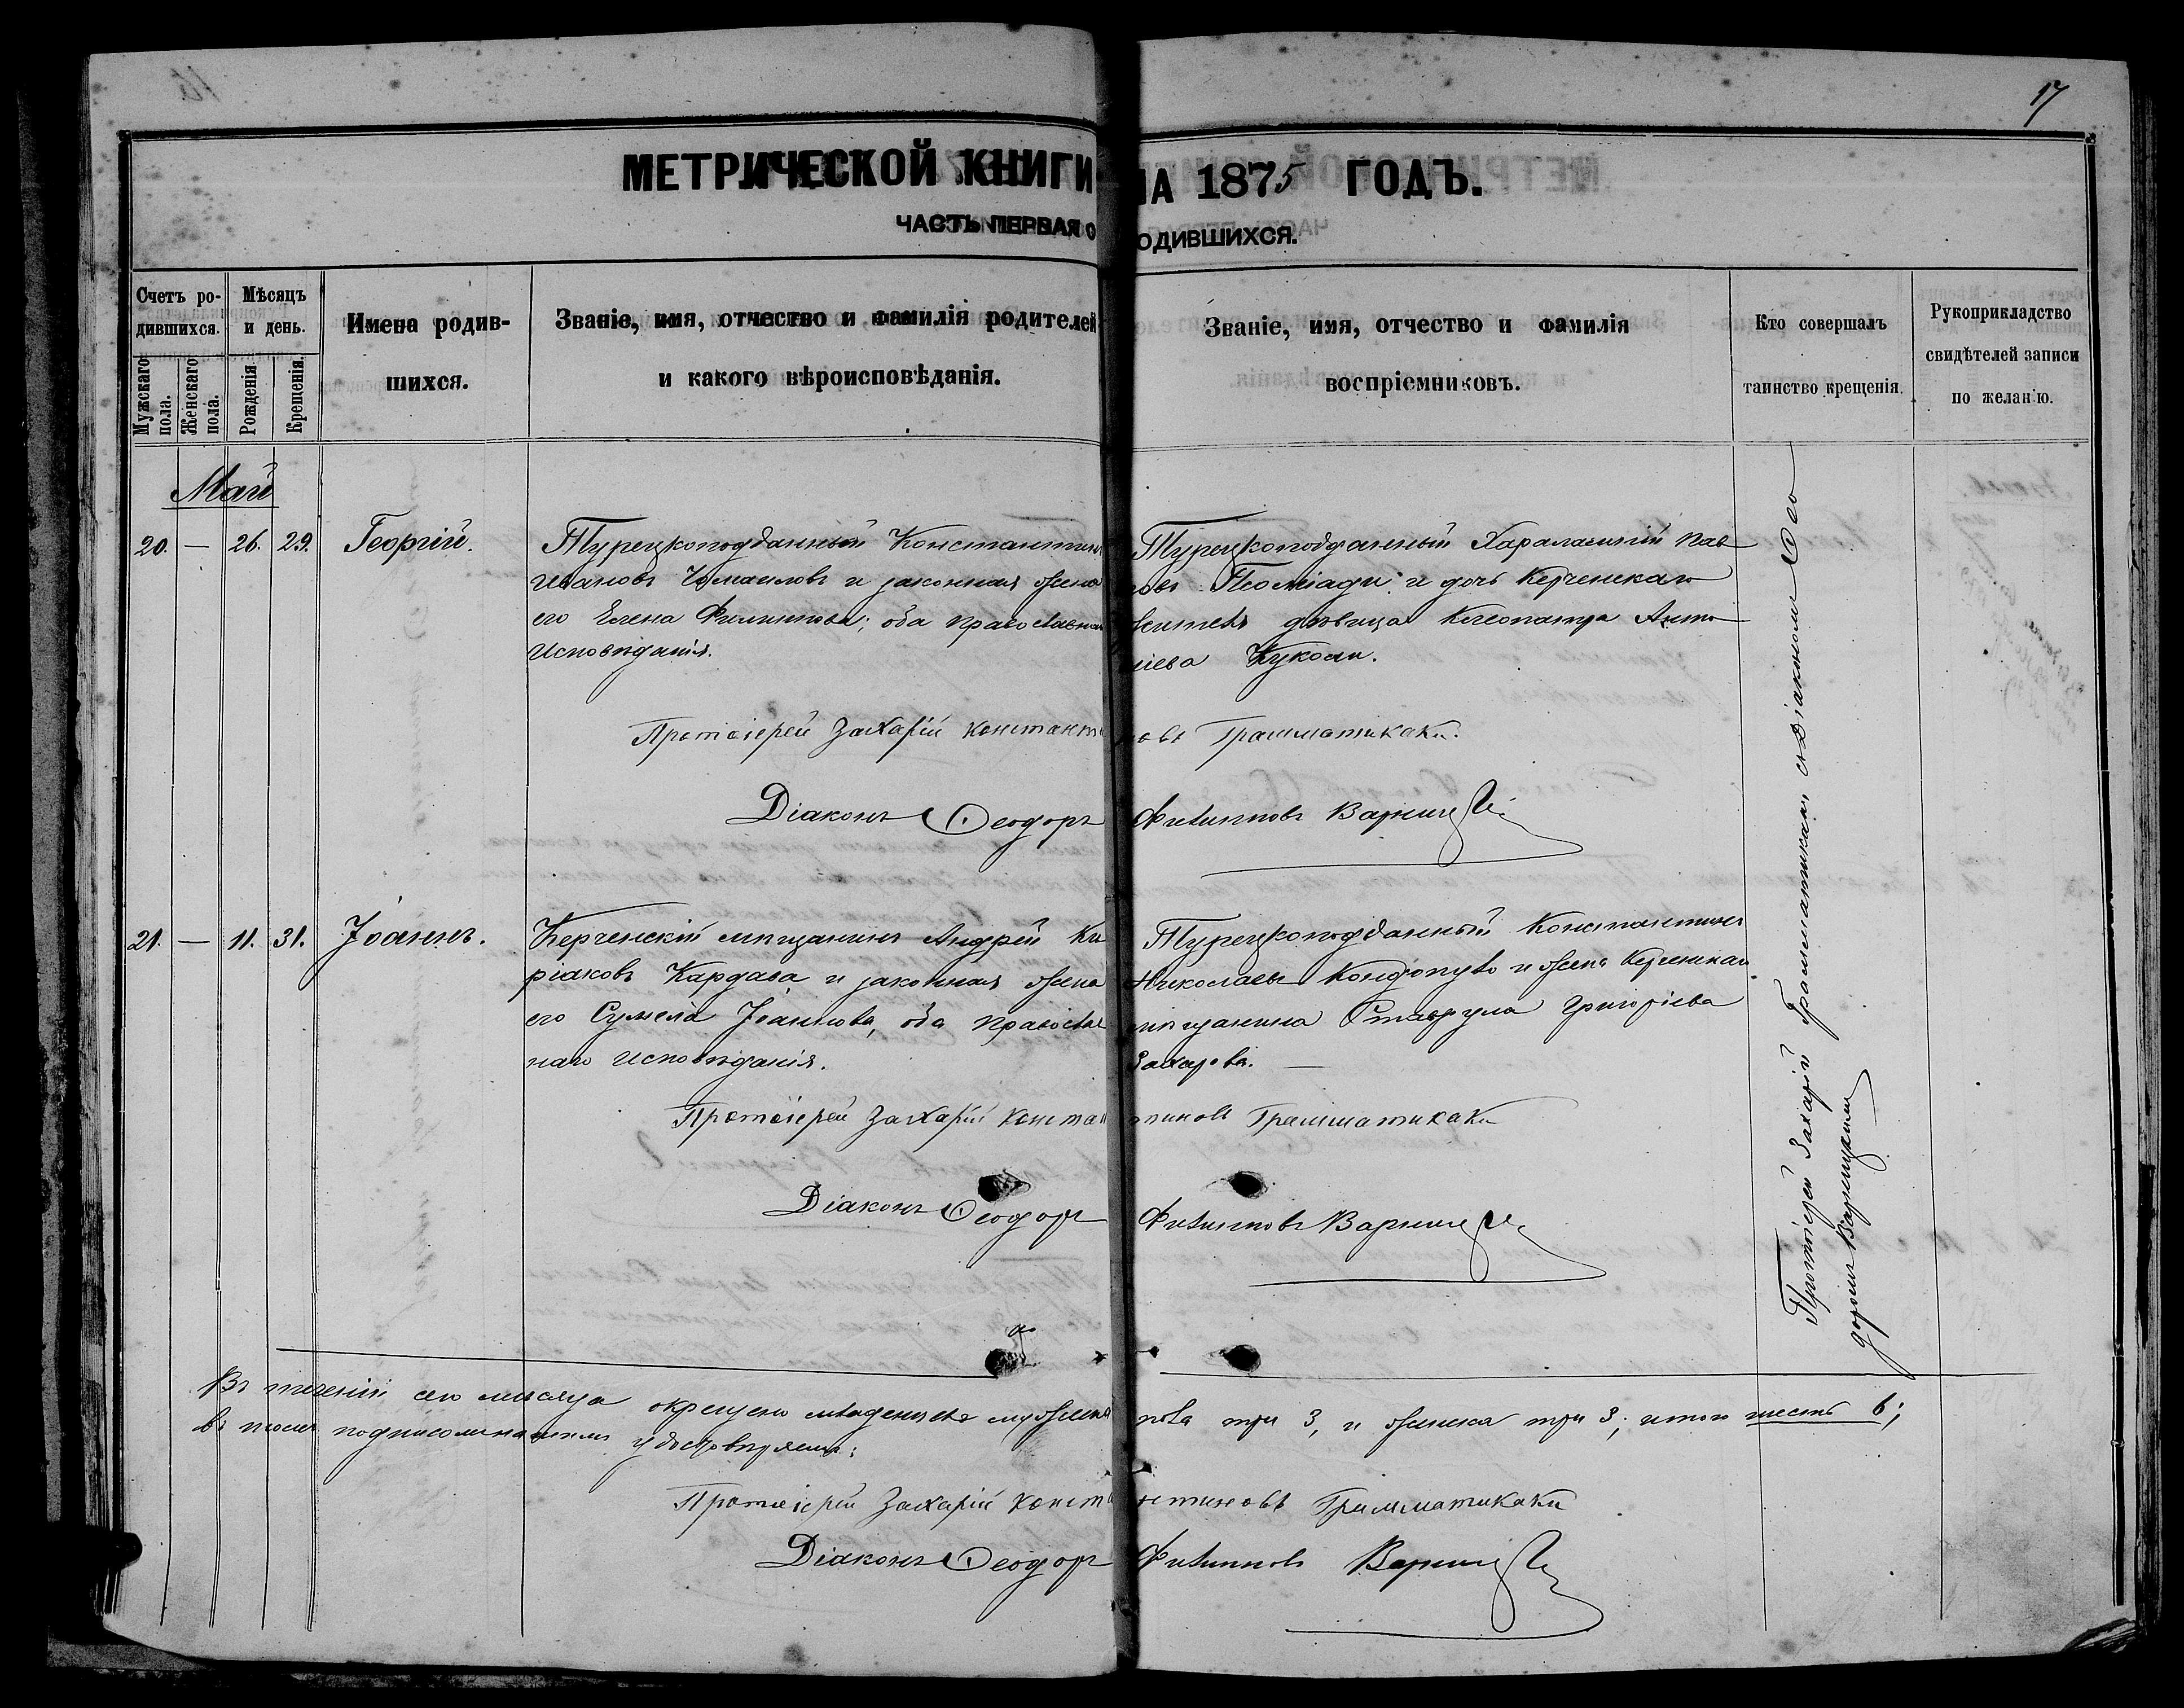 17
МЕТРИЧЕСКОЙ КНИГИ НА 1875 ГОДЪ.
ЧАСТЬ ПЕРВАЯ О РОДИВШИХСЯ.
Счетъ родившихся.
Мужскаго пола.
Женскаго пола.
Мѣсяцъ и день.
Рожденія.
Крещенія.
Имена родившихся.
Званіе, имя, отчество и фамилія родителей
и какого вѣроисповѣданія.
Званіе, имя, отчество и фамилія
воспріемниковъ.
Кто совершалъ
таинство крещенія.
Рукоприкладство
свидѣтелей записи
по желанію.
Май
20. — 26. 29. Георгій.
Турецкоподданный Константинъ
Ивановъ и законная жена
его Елена Филиппова; оба православнаго
Исповѣданія.
Турецкоподданный Харалампій Пав
ловъ и дочь Керченскаго
жителя дѣвица Клеопатра Анто
ніева
Протоіерей Захарій Константиновъ Грамматикаки.
Діаконъ Ѳеодоръ Филипповъ
21. — 11. 31. Іоаннъ.
Керченскій мѣщанинъ Андрей Ки
ріаковъ Кардава и законная жена
его Сумела Іоаннова, оба православ
наго исповѣданія.
Турецкоподданный Константинъ
Николаевъ и жена Керченскаго
мѣщанина Ставрула Григоріева
Захарова. —
Протоіерей Захарій Константиновъ Грамматикаки
Діаконъ Ѳеодоръ Филипповъ
Протоіерей Захарій Грамматикаки съ Діакономъ Ѳео
доромъ
Въ теченіи сего мѣсяца окрещено младенцевъ мужеска пола три 3, и женска три 3; итого шесть 6;
въ томъ подписомъ нашимъ удостовѣряемъ:
Протоіерей Захарій Константиновъ Грамматикаки
Діаконъ Ѳеодоръ Филипповъ